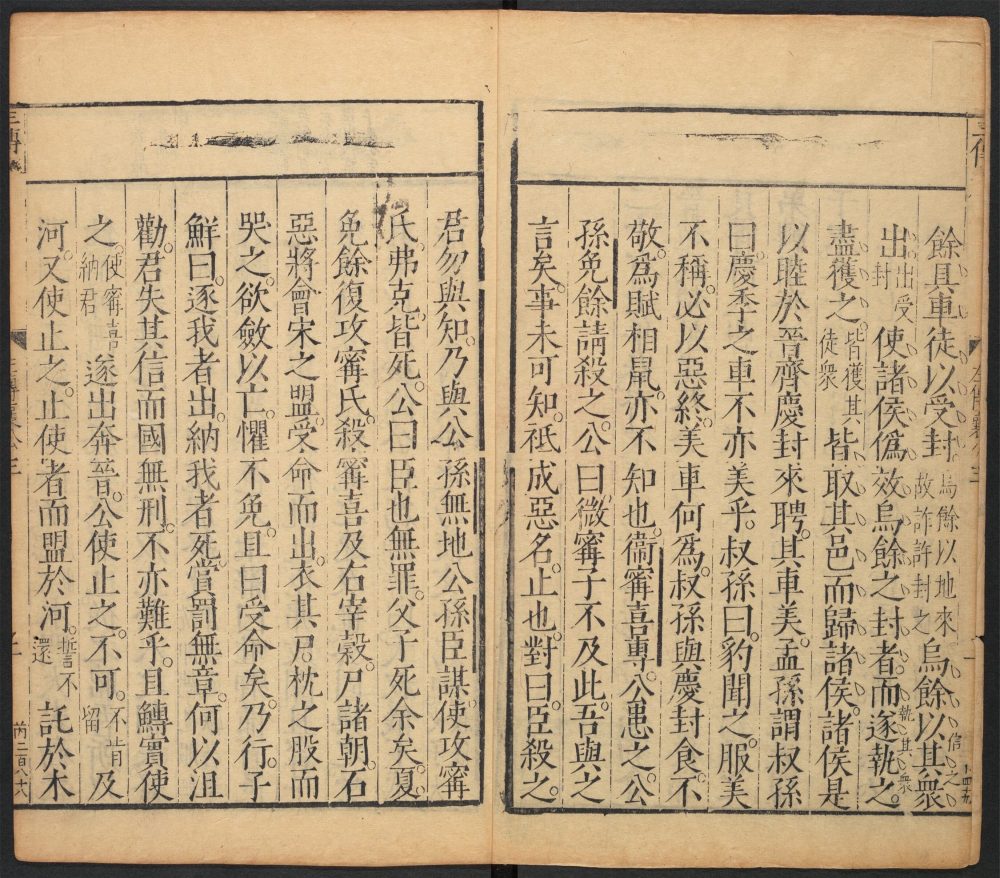 餘具車徒以受封烏餘以地來故詐許封之烏餘以其眾信之
出出受封使諸侯偽效烏餘之封者而遂執之執其眾
盡獲之皆獲其徒眾皆取其邑而歸諸侯諸侯是
以睦於晉齊慶封來聘其車美孟孫謂叔孫
曰慶季之車不亦美乎叔孫曰豹聞之服美
不稱必以惡終美車何為叔孫與慶封食不
敬為賦相鼠亦不知也衞甯喜專公患之公
孫免餘請殺之公曰微甯子不及此吾與之
言矣事未可知祇成惡名止也對曰臣殺之
君勿與知乃與公孫無地公孫臣謀使攻甯
氏弗克皆死公曰臣也無罪父子死余矣夏
免餘復攻甯氏殺甯喜及右宰穀尸諸朝石
惡將會宋之盟受命而出衣其尸枕之股而
哭之欲斂以亡懼不免且曰受命矣乃行子
鮮曰逐我者出納我者死賞罰無章何以沮
勸君失其信而國無刑不亦難乎且鱄實使
之使甯喜納君遂出奔晉公使止之不可不肯留及
河又使止之止使者而盟於河誓不還託於木